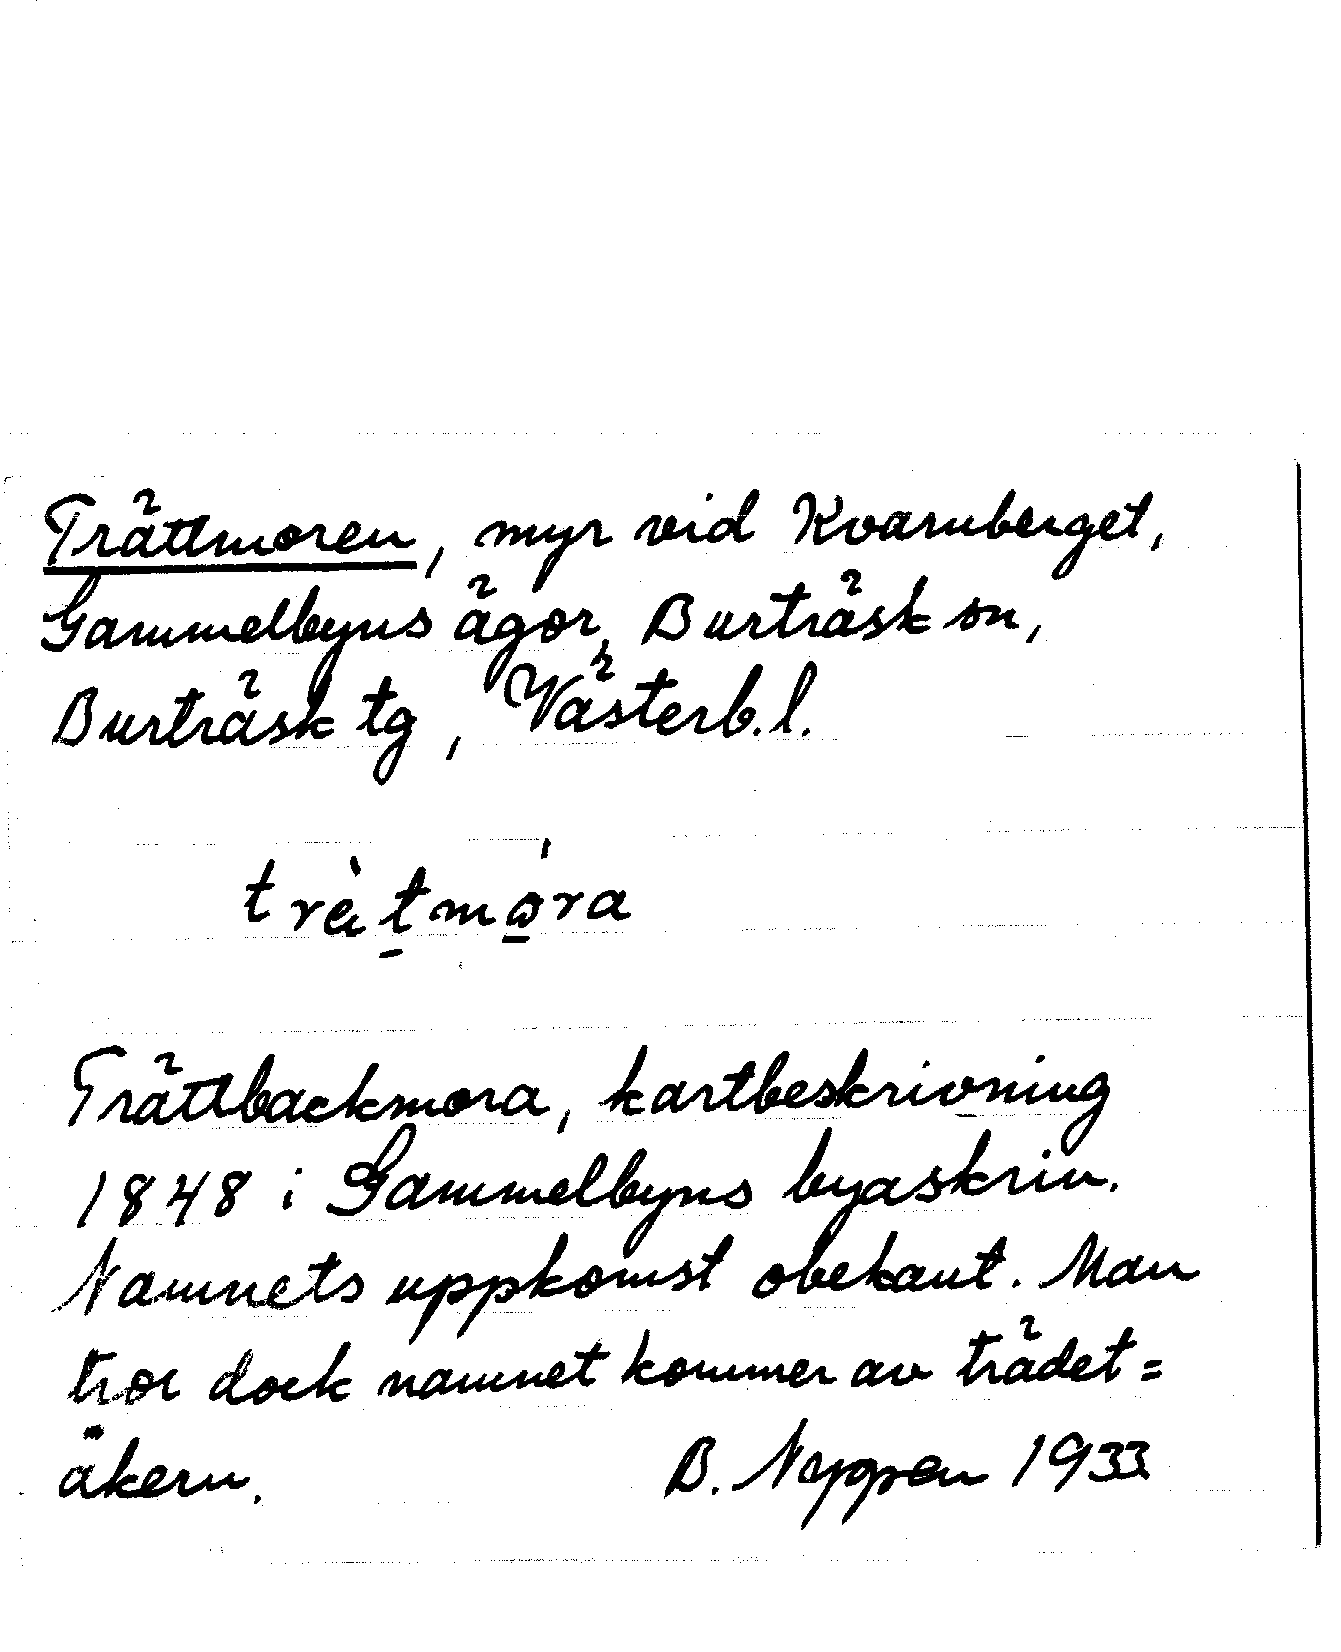 Trättmoren, myr vid Kvarnberget,
Gammelbyns ägor, Burträsk sn,
Burträsk tg, Västerb. l.
trèt̠mǫ́ra
Trättbackmora, kartbeskrivning
1848 i Gammelbyns byaskrin.
Namnets uppkomst obekant. Man
tror dock namnet kommer av trädet=
åkern. B. Nyppen 1933